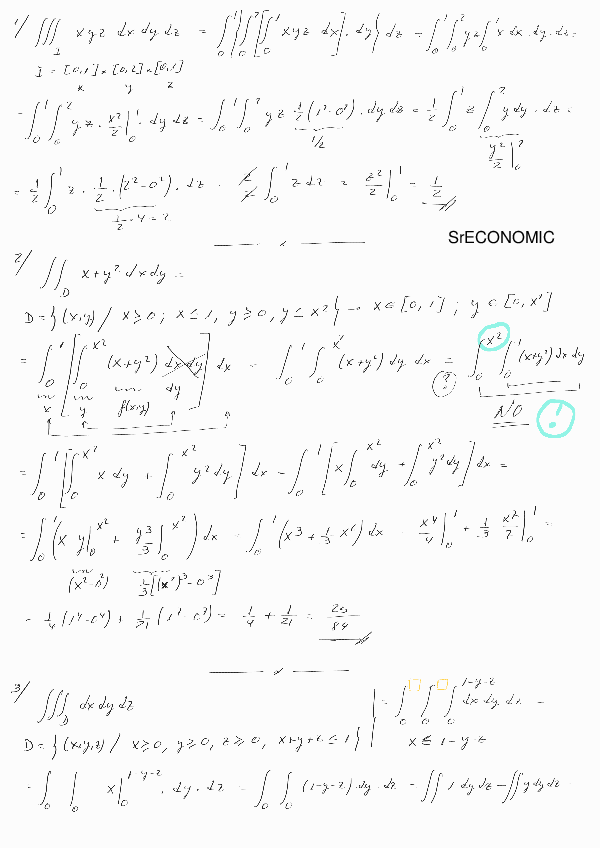 1/ ∭_I xyz dx dy dz = ∫₀¹{∫₀²[∫₀¹ xyz dx]·dy} dz = ∫₀¹∫₀² yz ∫₀¹ x dx·dy·dz =
I = [0,1]×[0,2]×[0,1]
x y z
= ∫₀¹∫₀² yz · x²/2 |₀¹ · dy dz = ∫₀¹∫₀² yz · 1/2 (1²-0²) · dy dz = 1/2 ∫₀¹ z ∫₀² y dy · dz =
1/2
y²/2 |₀²
= 1/2 ∫₀¹ z · 1/2 · (2²-0²) · dz = 2/2 ∫₀¹ z dz = z²/2 |₀¹ = 1/2
1/2 · 4 = 2
SrECONOMIC
2/ ∬_D x+y² dx dy =
D = {(x,y) / x≥0; x≤1, y≥0, y≤x²} → x∈[0,1]; y∈[0,x²]
= ∫₀¹[∫₀^x² (x+y²) dx dy] dx = ∫₀¹∫₀^x² (x+y²) dy dx = ∫₀^x² ∫₀¹ (x+y²) dx dy
dy
(?)
x y f(x,y)
NO !
= ∫₀¹[∫₀^x² x dy + ∫₀^x² y² dy] dx = ∫₀¹[x∫₀^x² dy + ∫₀^x² y² dy] dx =
= ∫₀¹ (x y|₀^x² + y³/3|₀^x²) dx = ∫₀¹ (x³ + 1/3 x⁶) dx = x⁴/4 |₀¹ + 1/3 x⁷/7 |₀¹ =
(x²-0²) 1/3[(x²)³-0³]
= 1/4 (1⁴-0⁴) + 1/21 (1⁷-0⁷) = 1/4 + 1/21 = 25/84
3/ ∭_D dx dy dz = ∫₀ ∫₀ ∫₀^1-y-z dx dy dz =
D = {(x,y,z) / x≥0, y≥0, z≥0, x+y+z≤1} x ≤ 1-y-z
= ∫₀ ∫₀ x|₀^1-y-z · dy · dz = ∫₀ ∫₀ (1-y-z) · dy · dz = ∬ 1 dy dz - ∬ y dy dz -